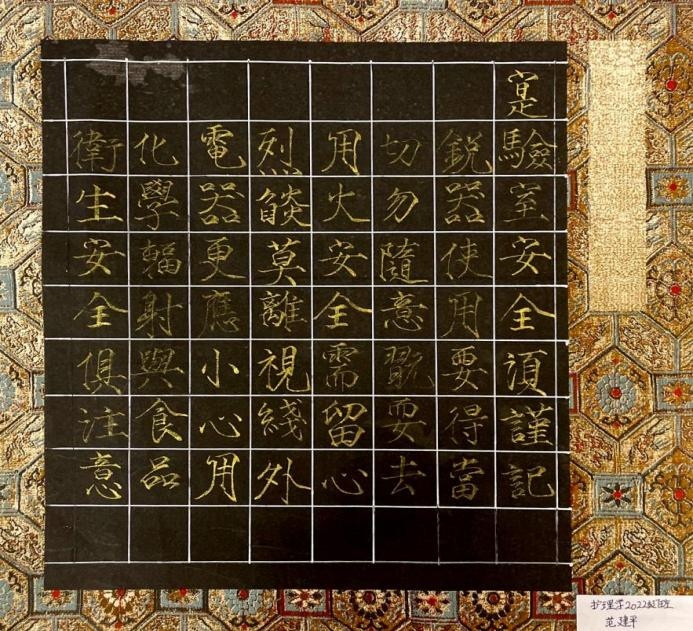 寔驗室安全須謹記
銳器使用要得當
切勿隨意翫耍去
用火安全需留心
烈燄莫離視綫外
電器更應小心用
化學輻射與食品
衛生安全俱注意
护理学2022级班
范建平